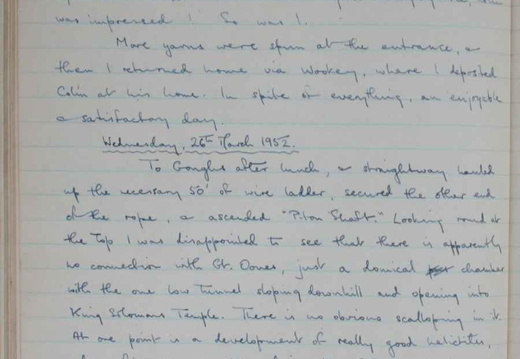 was impressed! So was I.
More yarns were spun at the entrance, &
then I returned home via Wookey, where I deposited
Colin at his home. In spite of everything, an enjoyable
& satisfactory day.
Wednesday, 26th March 1952.
To Goughs after lunch, & straightway hauled
up the necessary 50' of wire ladder, secured the other end
of the rope, & ascended "Piton Shaft." Looking round at
the top I was disappointed to see that there is apparently
no connection with Gt. Domes, just a domical chamber
with the one low tunnel sloping downhill and opening into
King Solomans Temple. There is no obvious scalloping in it.
At one point is a development of really good helictites,